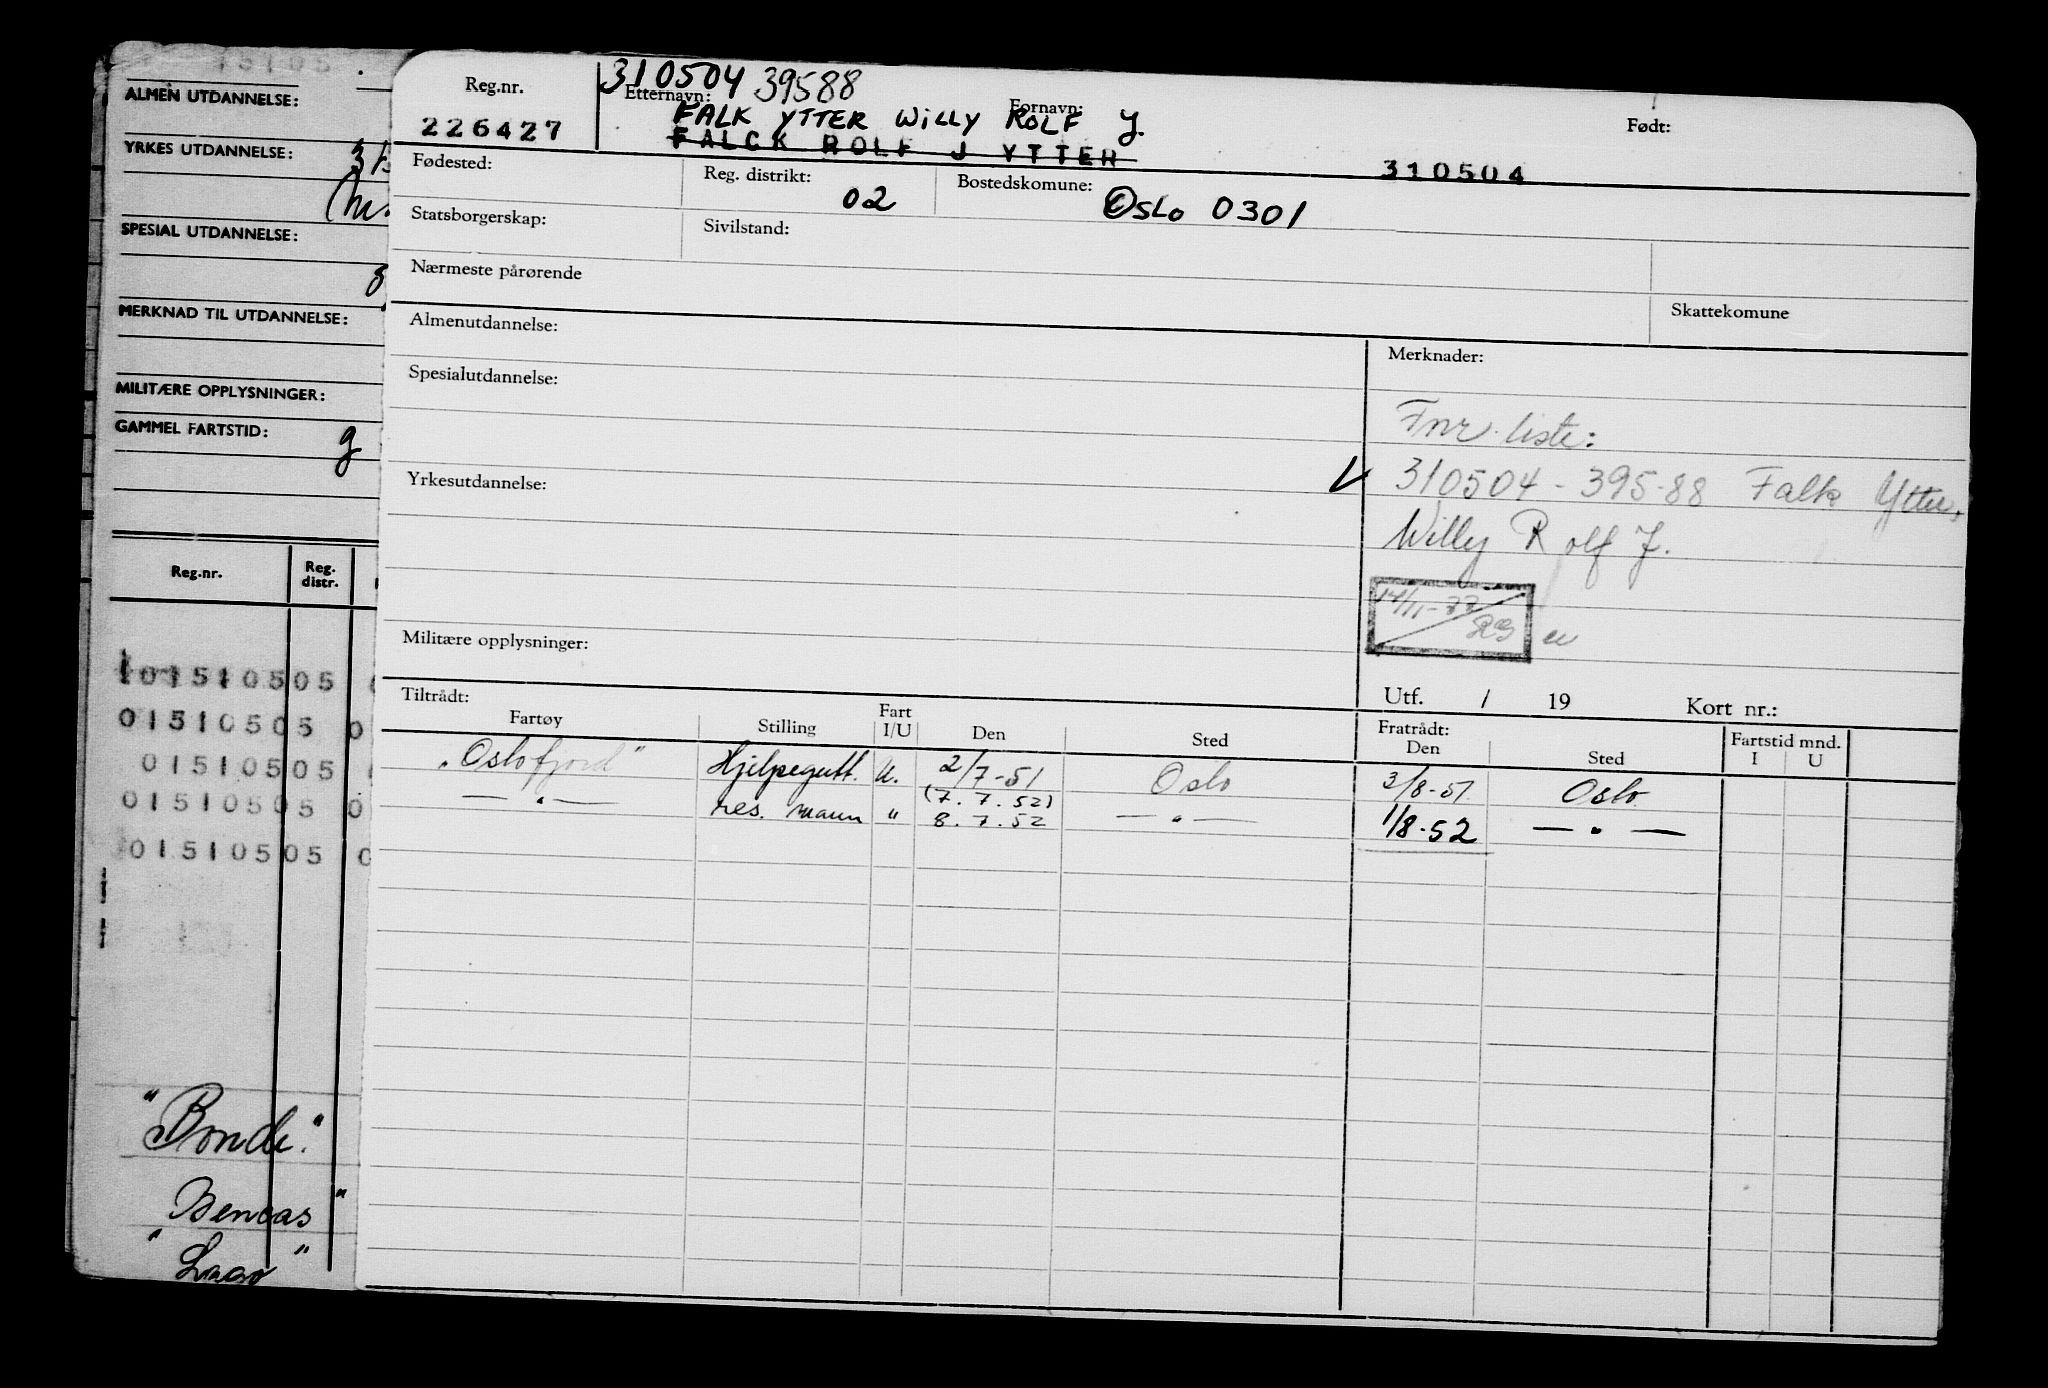 ALMEN UTDANNELSE:
YRKES UTDANNELSE:
SPESIAL UTDANNELSE:
MERKNAD TIL UTDANNELSE:
MILITÆRE OPPLYSNINGER:
GAMMEL FARTSTID:
g
Reg.nr.
Reg. distr.
01510505
01510505 0
01510505
01510505 0
01510505 0
"Bonde."
Bencas"
"Lago"
Reg.nr.
226427
310504 39588
Etternavn:
Fornavn:
FALK YTTER WILLY ROLF J.
FALCK ROLF J YTTER
Født:
310504
Fødested:
Reg. distrikt:
02
Bostedskomune:
Oslo 0301
Statsborgerskap:
Sivilstand:
Nærmeste pårørende
Skattekomune
Almenutdannelse:
Merknader:
Spesialutdannelse:
Fnr. liste:
Yrkesutdannelse:
V 310504-395-88 Falk Ytter,
Willy Rolf J.
14/11-77
Militære opplysninger:
Utf. / 19 Kort nr.:
Tiltrådt:
Fartøy
Stilling
Fart I/U
Den
Sted
Fratrådt:
Den
Sted
Fartstid mnd.
I U
"Oslofjord" Hjelpegutt. U. 2/7-51 Oslo 3/8-51 Oslo
(7.7.52)
— " — res. mann " 8.7.52 — " — 1/8-52 — " —